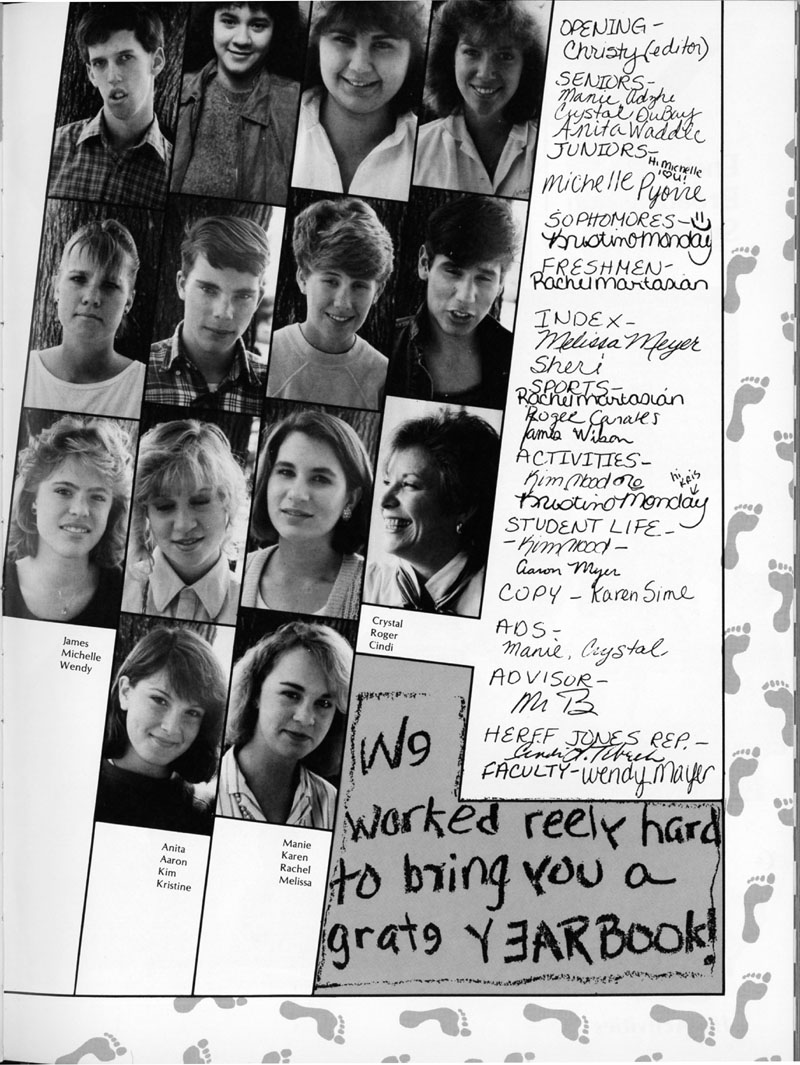 OPENING -
Christy (editor)
SENIORS -
Manie
Crystal DuBay
Anita Waddle
JUNIORS -
Hi Michelle
I ♡ U!
Michelle
SOPHOMORES -
Kristine Monday
FRESHMEN -
Rachel Martasian
INDEX -
Melissa Meyer
Sheri
SPORTS -
Rachel Martasian
Roger
James Wilson
ACTIVITIES -
Kim Wood
hi kris
Kristine Monday
STUDENT LIFE -
- Kim Wood -
Aaron Myer
COPY - Karen Sime
ADS -
Manie, Crystal
ADVISOR -
Mr B
HERFF JONES REP. -
FACULTY - Wendy Mayer
James
Michelle
Wendy
Crystal
Roger
Cindi
Anita
Aaron
Kim
Kristine
Manie
Karen
Rachel
Melissa
We
worked reely hard
to bring you a
grate YEARBOOK!